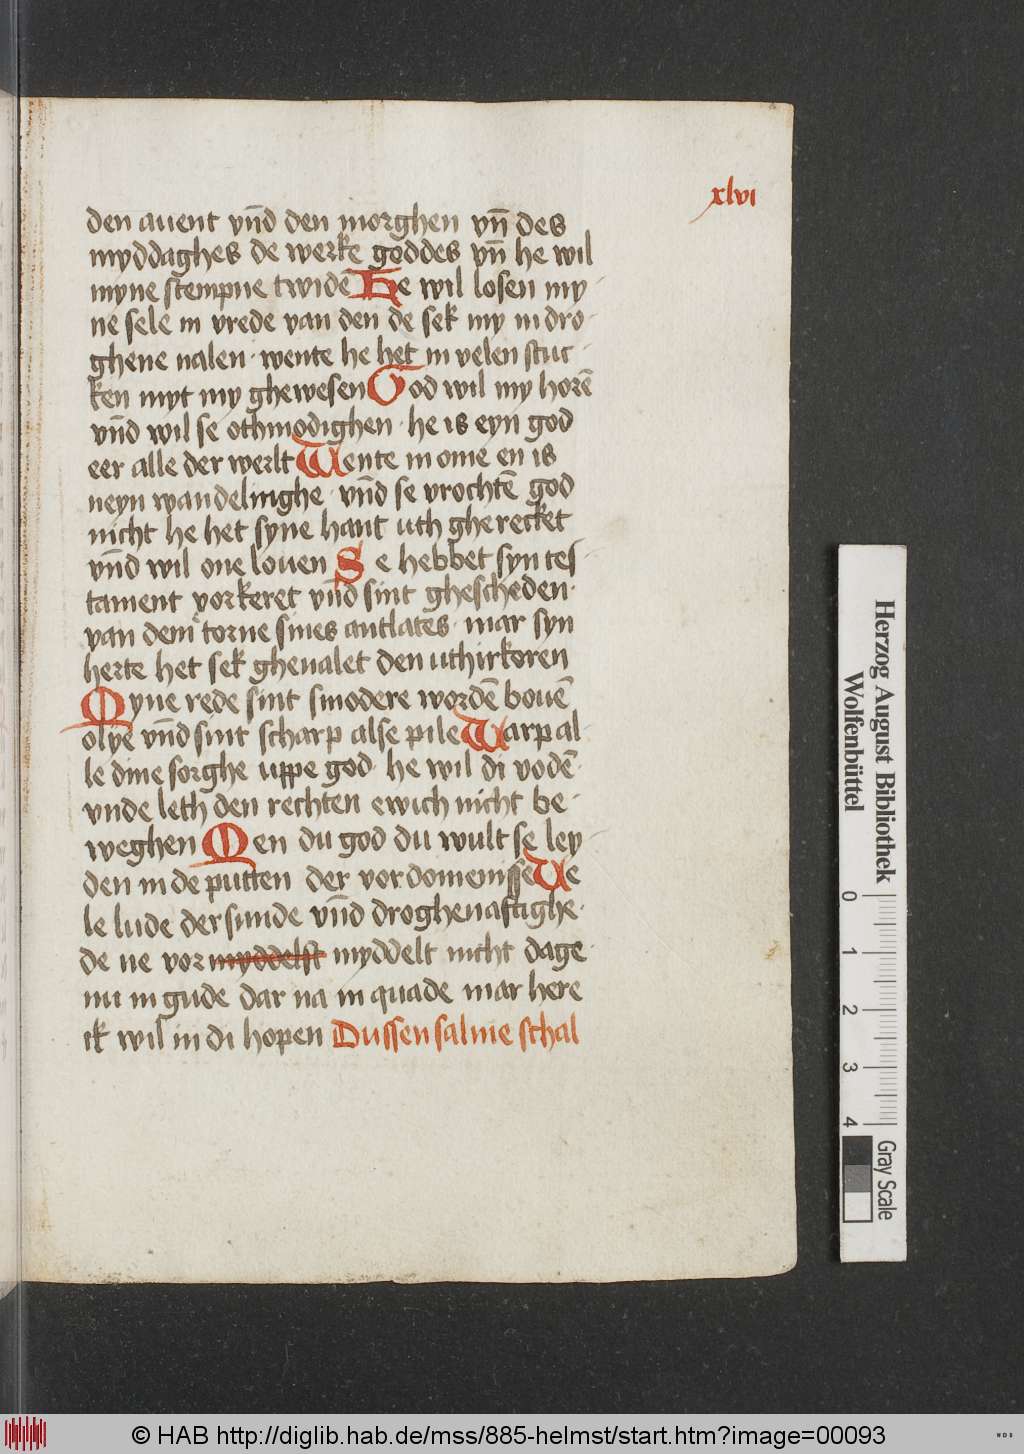 xlvi
den auent vn̄d den morghen vn̄ des
myddaghes de werke goddes vn̄ he wil
myne stempne twidē He wil losen my
ne sele in vrede van den de sek my in dro
ghene nalen · wente he het in velen stuc
ken myt my ghewesen God wil my horē
vn̄d wil se othmodighen · he is eyn god
eer alle der werlt Wente in ome en is
neyn wandelinghe · vn̄d se vrochtē god
nicht he het syne hant uth gherecket
vn̄d wil one louen Se hebbet syn tes
tament vorkeret vn̄d sint ghescheden ·
van dem torne sines antlates · mar syn
herte het sek ghenalet den uthirkoren
Myne rede sint smodere wordē bouē
olye vn̄d sint scharp alse pile Warp al
le dine sorghe uppe god · he wil di vodē ·
vnde leth den rechten ewich nicht be
weghen Men du god du wult se ley
den in de putten der vordomenisse Ve
le lude der sunde vn̄d droghenaftighe ·
de ne vor myddelst myddelt nicht dage
nu in gude dar na in quade mar here
ik wil in di hopen Dussen salme schal
Herzog August Bibliothek
Wolfenbüttel
0 1 2 3 4
Gray Scale
© HAB http://diglib.hab.de/mss/885-helmst/start.htm?image=00093